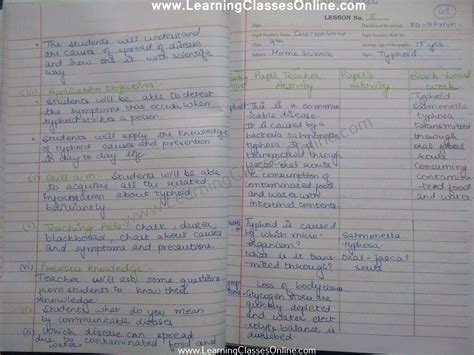 www.LearningClassesOnline.com
The students will understand
the causes of spread of disease
and how one it with scientific
way
(iii) Application Objectives :-
Students will be able to detect
the symptoms that occur when
typhoid strikes a person.
Students will apply the knowledge
of typhoid causes and prevention
in day to day life
Skill aim - Students will be able
to acquire all the related
information about typhoid
brilliantly
(v) Teaching Aids : chalk, duster,
blackboard, chart about causes
and symptoms and precautions.
Previous Knowledge -
Teacher will ask some questions
from students to know their
knowledge.
(i) Students what do you mean
by communicable diseases
(ii) Which disease can spread
due to contaminated food and
LESSON No. 5
Date
Duration of the period 30-40 min.
Pupil Teacher's Name
Class 9th
Average Age of the pupils 15 yrs
Subject Home Science
Topic Typhoid
Pupil Teacher
Activity
Pupil's
activity
Black-board
work
This is a commun
icable disease
It is caused by a
bacteria salmonella
typhosa. It is
transmitted through
faecal-oral route
consumption of
contaminated food
and water with
intestinal contents
Typhoid
salmonella
typhosa
transmitted
through
oral faecal
route
Consuming
contamina
-ted food
and water
Typhoid is caused
by which micro-
organism?
What is it tran-
smitted through?
Salmonella
typhosa.
Oral-faecal
route
Loss of body tissue
Glycogen stores are
quickly depleted
and water elect-
rolyte balance is
disturbed
www.LearningClassesOnline.com
www.LearningClassesOnline.com